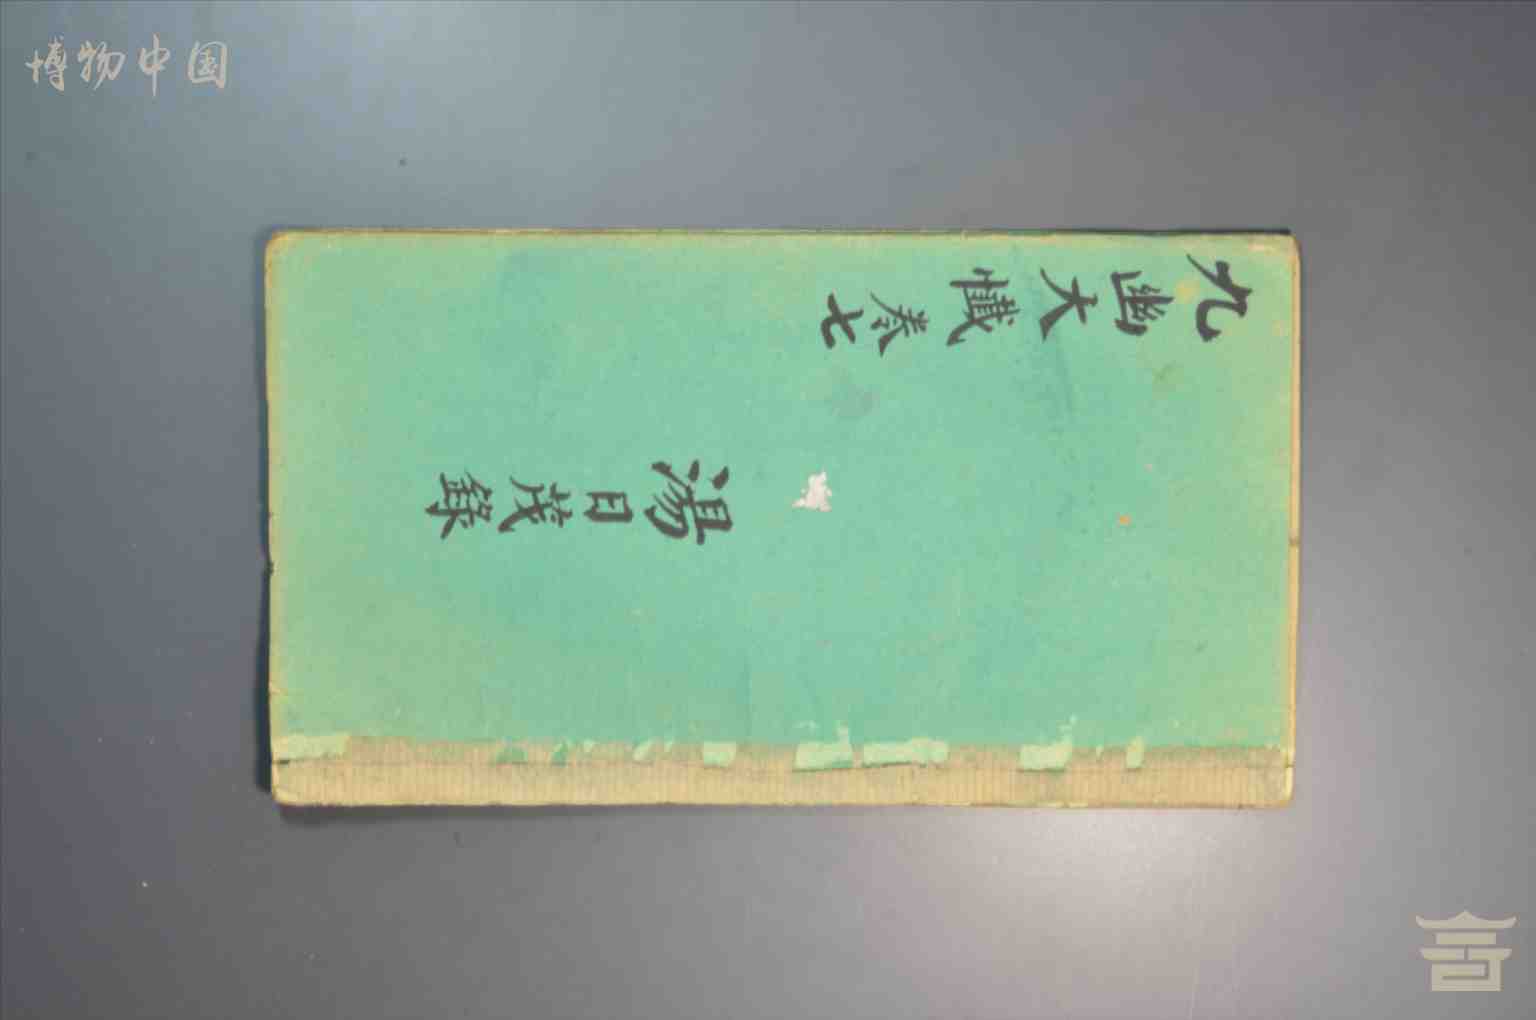 博物中国
九幽大懺卷七
湯日茂錄